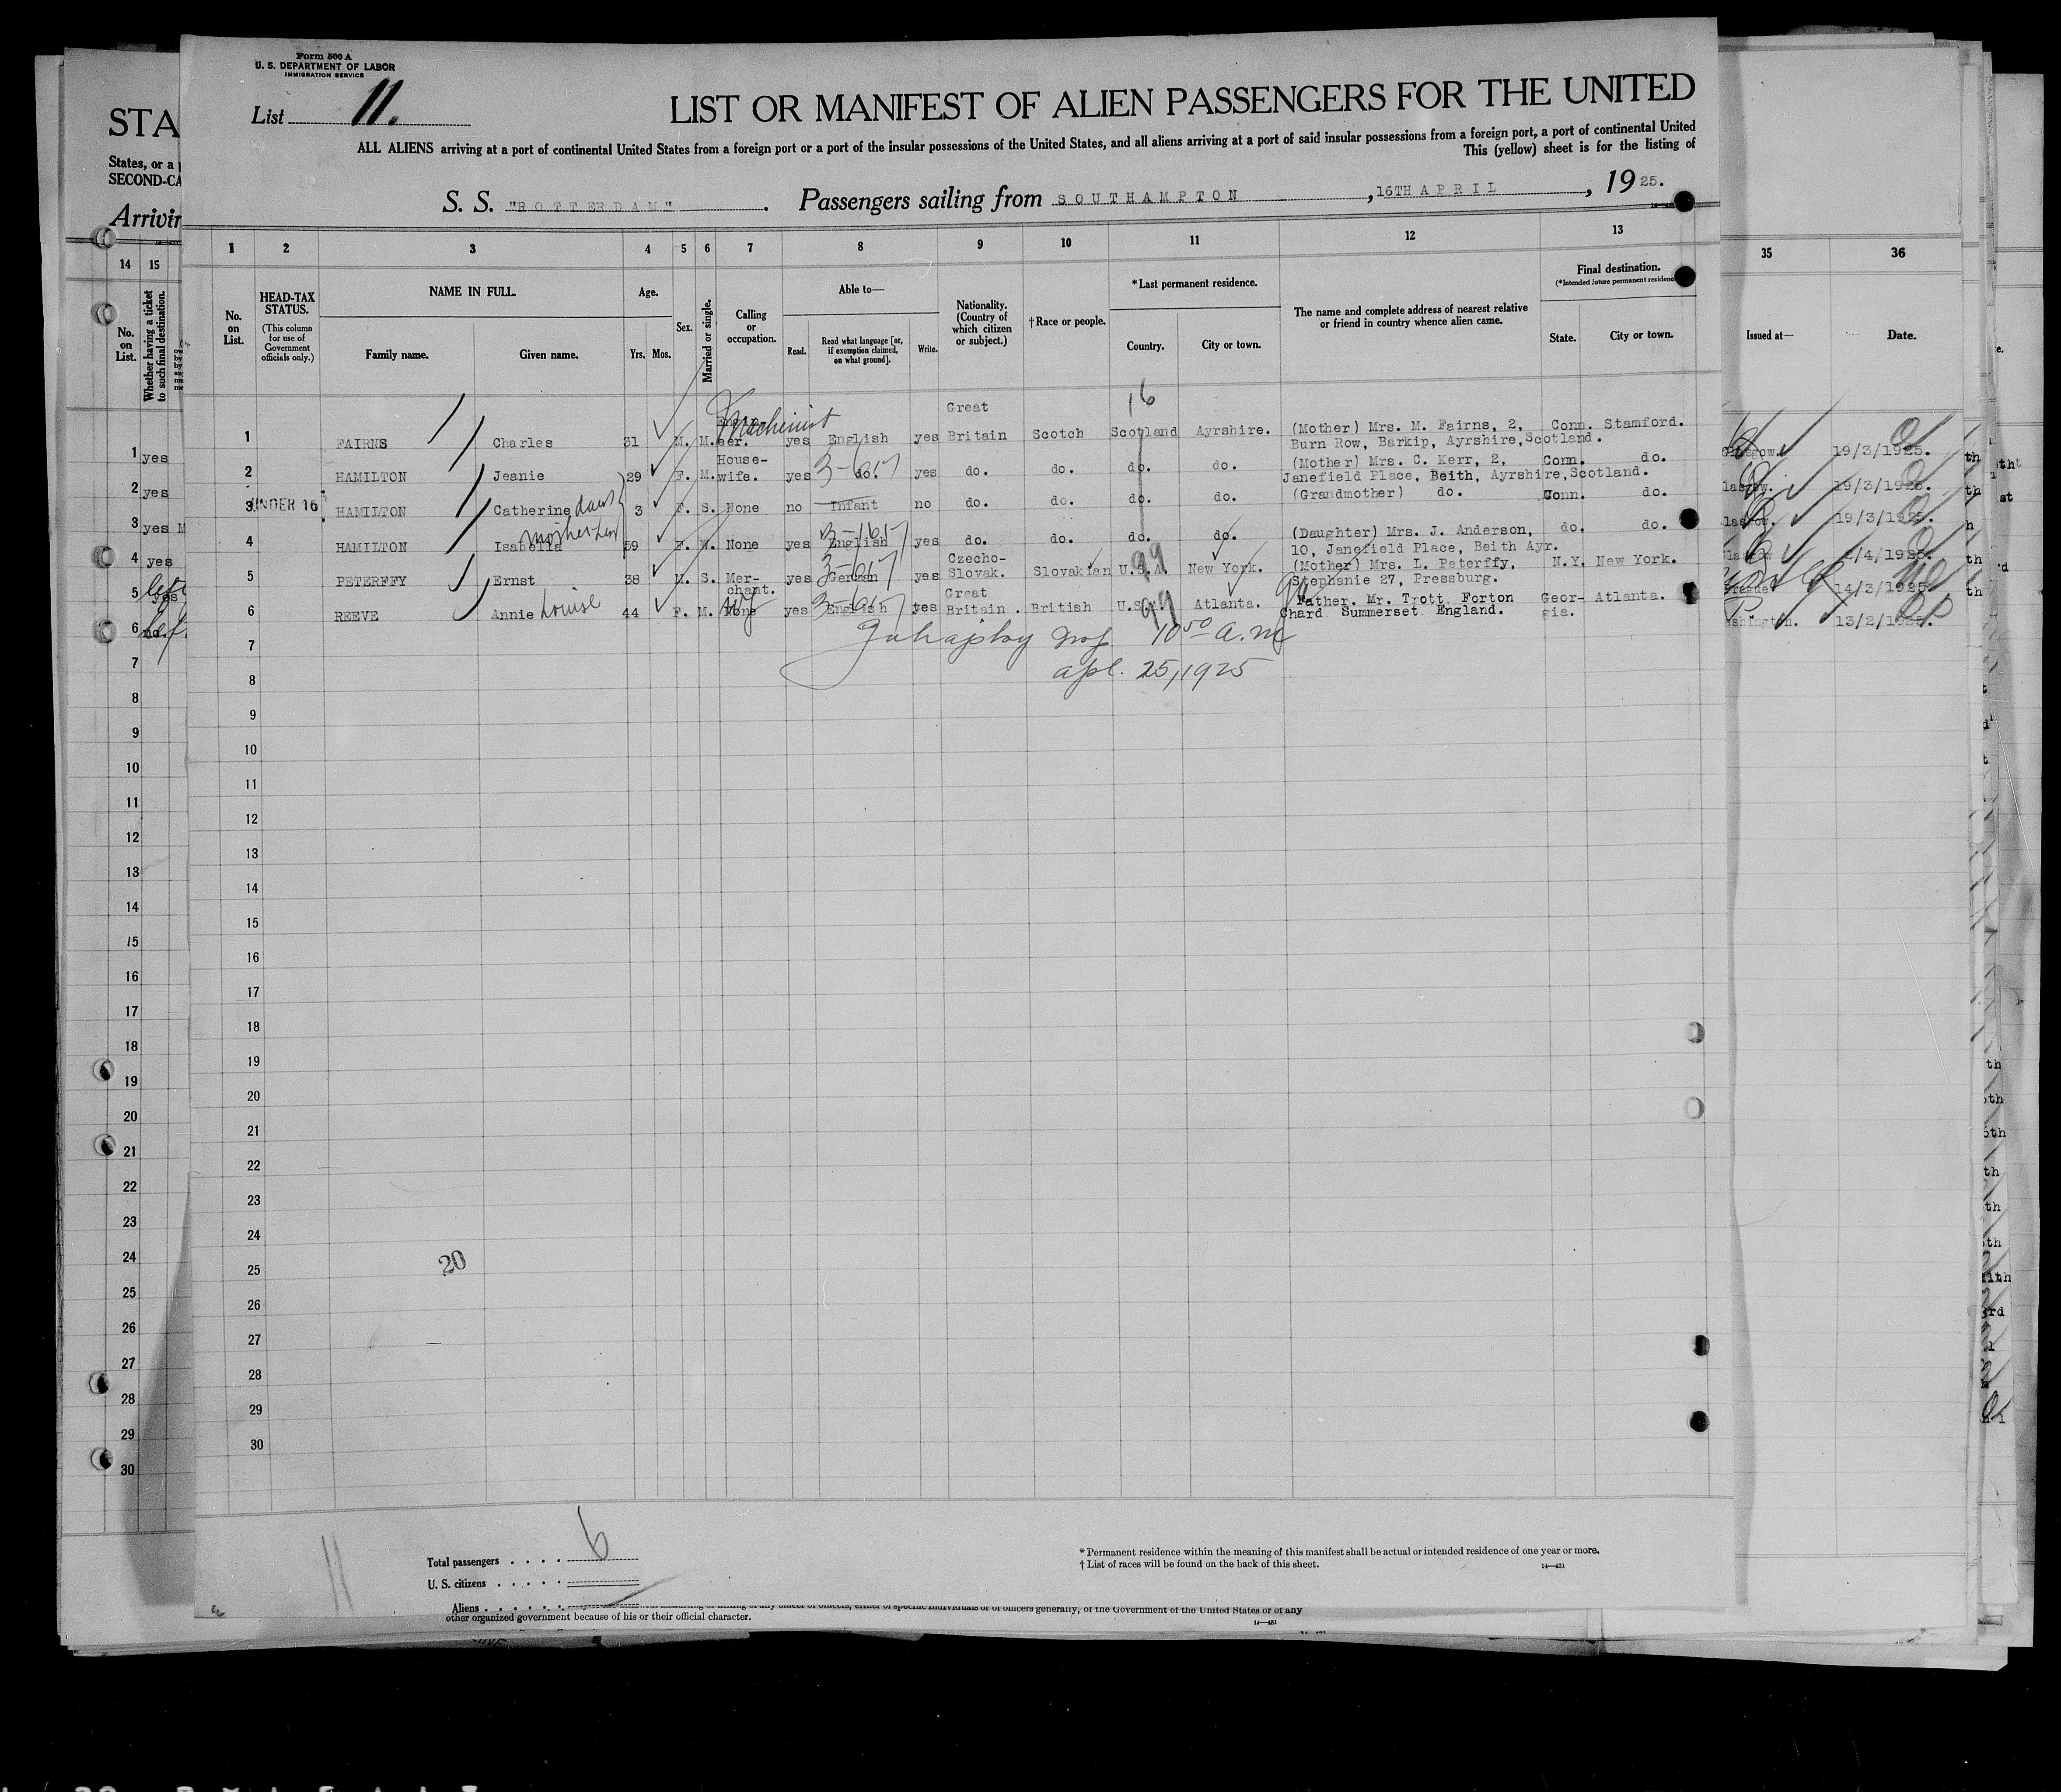 Form 500 A
U. S. DEPARTMENT OF LABOR
IMMIGRATION SERVICE
List 11.
LIST OR MANIFEST OF ALIEN PASSENGERS FOR THE UNITED
ALL ALIENS arriving at a port of continental United States from a foreign port or a port of the insular possessions of the United States, and all aliens arriving at a port of said insular possessions from a foreign port, a port of continental United
This (yellow) sheet is for the listing of
S. S. "ROTTERDAM". Passengers sailing from SOUTHAMPTON, 16TH APRIL, 1925.
STA
States, or a p
SECOND-CA
Arrivin
14 15
No. on List.
Whether having a ticket to such final destination.
1 2 3 4 5 6 7 8 9 10 11 12 13
35 36
No. on List.
HEAD-TAX STATUS.
(This column for use of Government officials only.)
NAME IN FULL.
Family name. Given name.
Age.
Yrs. Mos.
Sex.
Married or single.
Calling or occupation.
Able to—
Read. Read what language [or, if exemption claimed, on what ground]. Write.
Nationality. (Country of which citizen or subject.)
†Race or people.
*Last permanent residence.
Country. City or town.
The name and complete address of nearest relative or friend in country whence alien came.
Final destination.
(*Intended future permanent residence
State. City or town.
Issued at— Date.
16
1 FAIRNS Charles 31 M. M. eer. Machinist yes English yes Great Britain Scotch Scotland Ayrshire. (Mother) Mrs. M. Fairns, 2, Conn. Stamford.
Burn Row, Barkip, Ayrshire, Scotland.
2 HAMILTON Jeanie 29 F. M. House-wife. yes do. yes do. do. do. do. (Mother) Mrs. C. Kerr, 2, Conn. do.
Janefield Place, Beith, Ayrshire, Scotland.
UNDER 16
3 HAMILTON Catherine 3 F. S. None no Infant no do. do. do. do. (Grandmother) do. Conn. do.
4 HAMILTON Isabella 59 F. W. None yes English yes do. do. do. do. (Daughter) Mrs. J. Anderson, do. do.
10, Janefield Place, Beith Ayr.
5 PETERFFY Ernst 38 M. S. Mer-chant. yes German yes Czecho-Slovak. Slovakian U.S.A. 99 New York. (Mother) Mrs. L. Peterffy, N.Y. New York.
Stephanie 27, Pressburg.
6 REEVE Annie Louise 44 F. M. None yes English yes Great Britain. British U.S.A. 99 Atlanta. Father. Mr. Trott Forton Geor-gia. Atlanta.
Chard Summerset England.
10 50 A.M
Apl. 25, 1925
1 yes
2 yes
3 yes M
4 yes
5 yes
6 no.
19/3/1925.
19/3/1925.
19/3/1925.
/4/1925.
14/3/1925.
13/2/1925.
7
8
9
10
11
12
13
14
15
16
17
18
19
20
21
22
23
24
25
26
27
28
29
30
20
11
Total passengers . . . . 6
U. S. citizens . . . . .
Aliens . . . . . .
* Permanent residence within the meaning of this manifest shall be actual or intended residence of one year or more.
† List of races will be found on the back of this sheet.
14—431
other organized government because of his or their official character.
14—431